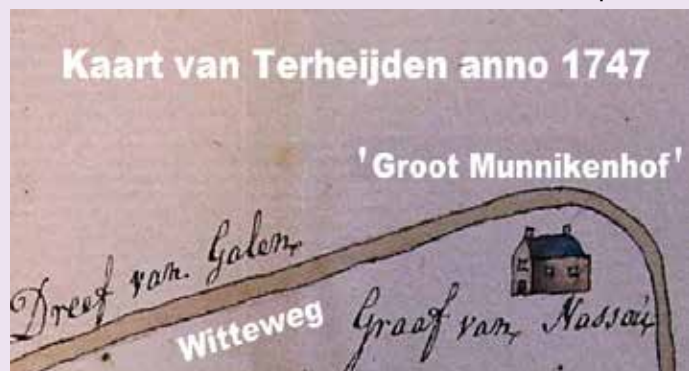 Kaart van Terheijden anno 1747
'Groot Munnikenhof'
Dreef van Galen
Witteweg
Graaf van Nassau